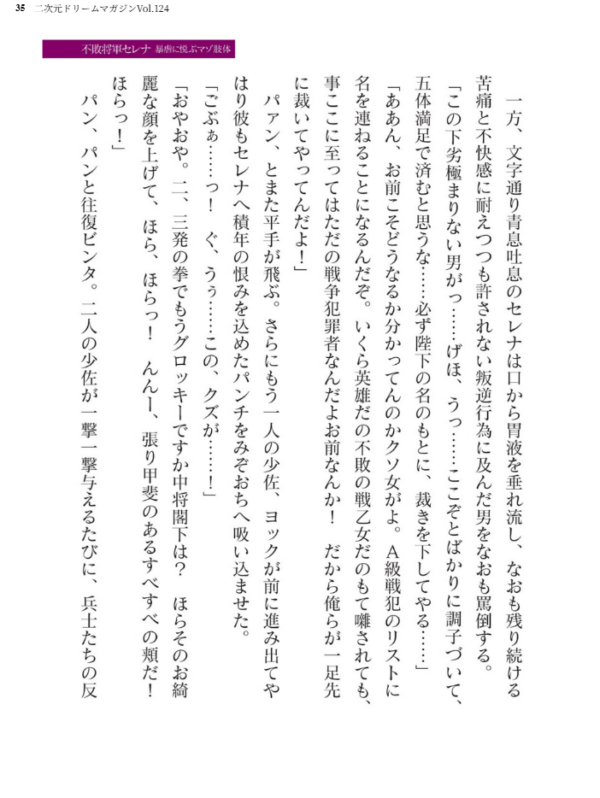 35 二次元ドリームマガジンVol.124
不敗将軍セレナ 暴虐に悦ぶマゾ肢体
一方、文字通り青息吐息のセレナは口から胃液を垂れ流し、なおも残り続ける
苦痛と不快感に耐えつつも許されない叛逆行為に及んだ男をなおも罵倒する。
「この下劣極まりない男がっ……げほ、うっ……ここぞとばかりに調子づいて、
五体満足で済むと思うな……必ず陛下の名のもとに、裁きを下してやる……」
「ああん、お前こそどうなるか分かってんのかクソ女がよ。A級戦犯のリストに
名を連ねることになるんだぞ。いくら英雄だの不敗の戦乙女だのもて囃されても、
事ここに至ってはただの戦争犯罪者なんだよお前なんか！　だから俺らが一足先
に裁いてやってんだよ！」
パァン、とまた平手が飛ぶ。さらにもう一人の少佐、ヨックが前に進み出てや
はり彼もセレナへ積年の恨みを込めたパンチをみぞおちへ吸い込ませた。
「ごぶぁ……っ！　ぐ、うぅ……この、クズが……！」
「おやおや。二、三発の拳でもうグロッキーですか中将閣下は？　ほらそのお綺
麗な顔を上げて、ほら、ほらっ！　んんー、張り甲斐のあるすべすべの頬だ！
ほらっ！」
パン、パンと往復ビンタ。二人の少佐が一撃一撃与えるたびに、兵士たちの反